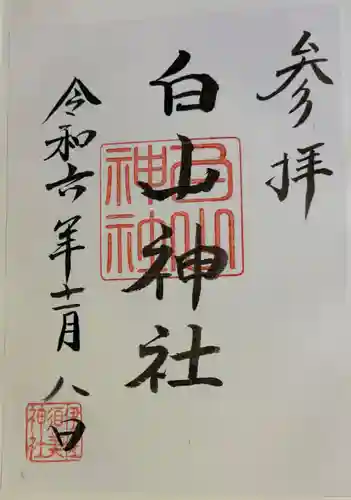 参拝
白山神社
令和六年十一月八日
白山神社
伊豆美神社